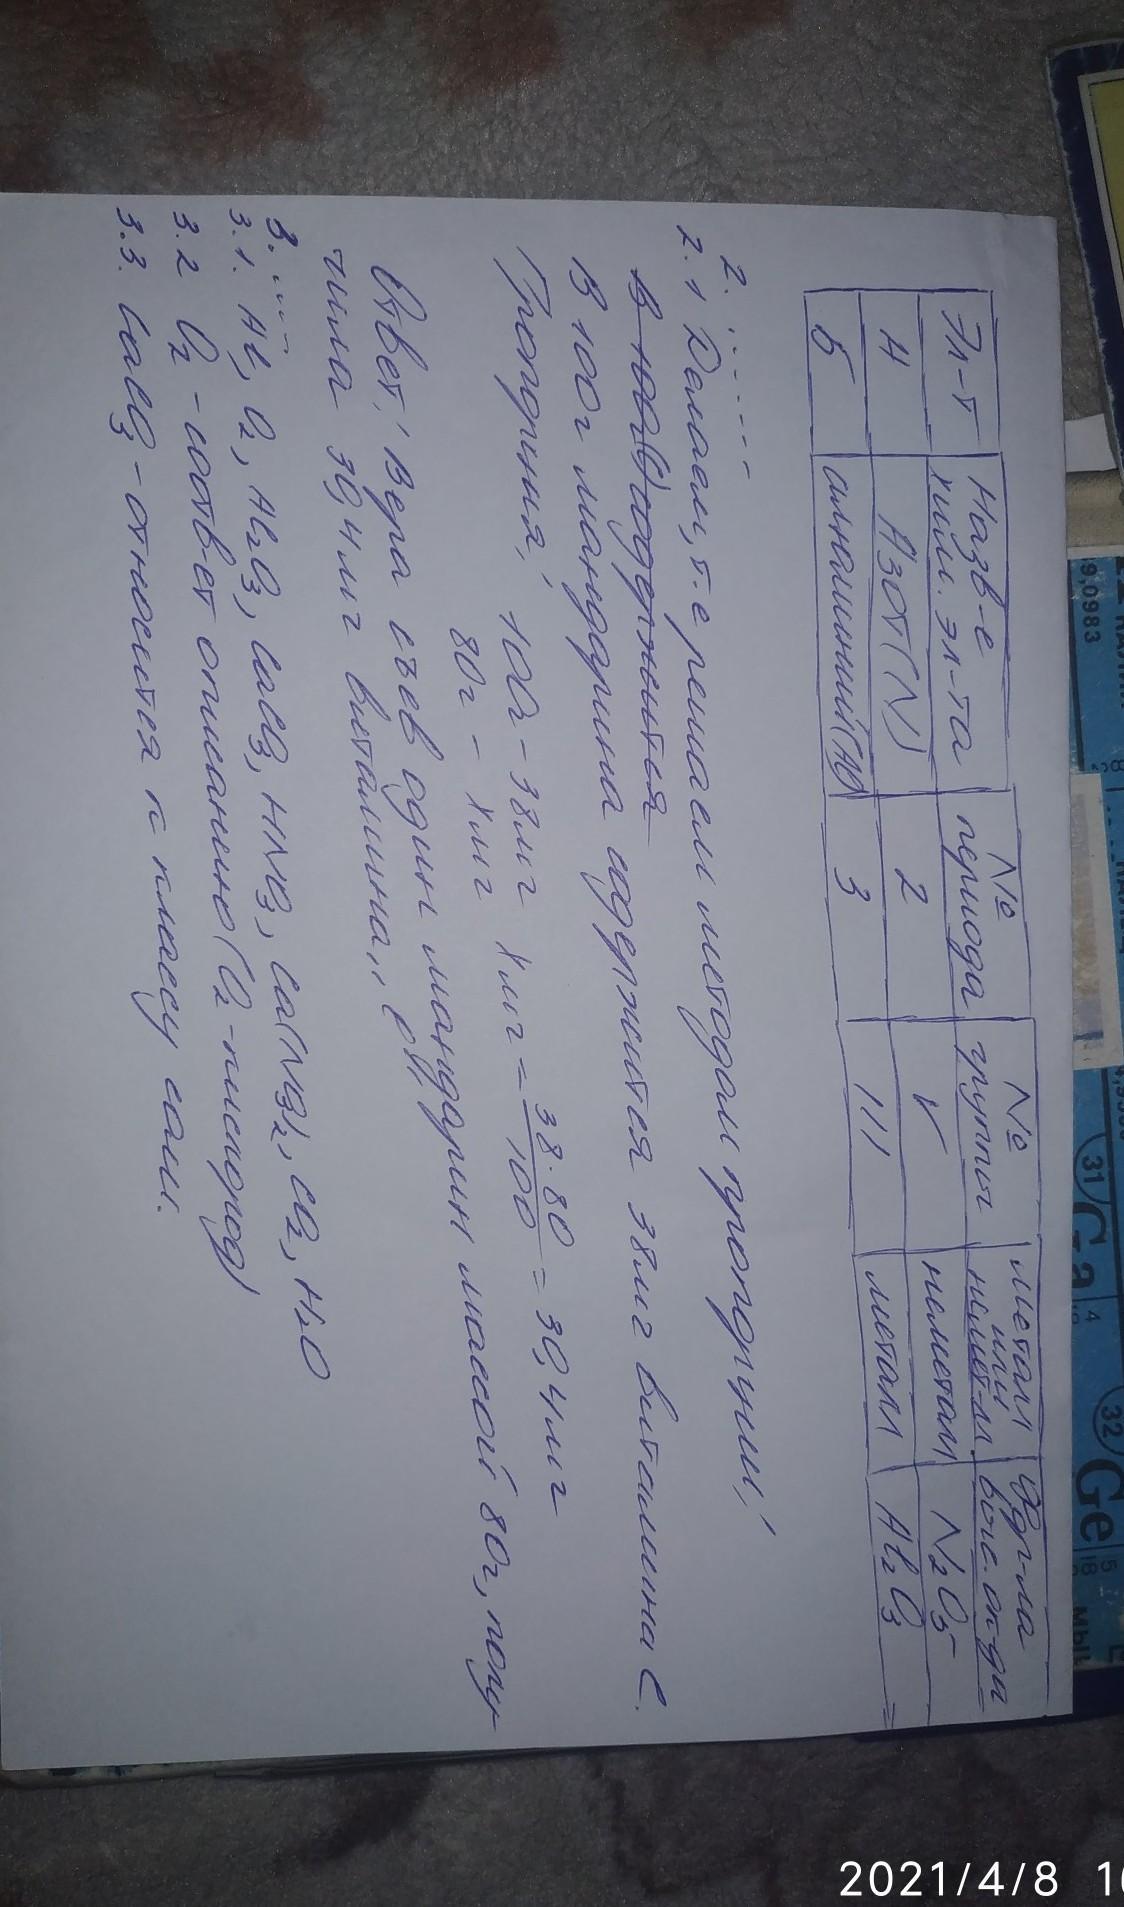 Эл-т Назв-е хим. эл-та № периода № группы металл или немет-л. Фор-ла выс. ок-да
А Азот (N) 2 V неметалл N₂O₅
Б алюминий (Al) 3 III металл Al₂O₃
2. ......
2.1 Делаем, т.е решаем методом пропорции;
В 100г содержится
В 100г мандарина содержится 38мг витамина С.
Пропорция; 100г - 38мг xмг = 38·80/100 = 30,4мг
80г - xмг
Ответ; Вера съев один мандарин массой 80г, полу-
чила 30,4мг витамина „С".
3. ....
3.1. Al, O₂, Al₂O₃, CaCO₃, HNO₃, Ca(NO₃)₂, CO₂, H₂O
3.2 O₂ - соответ описанию (O₂ - кислород)
3.3. CaCO₃ - относится к классу соли.
49,0983
31 Ga
32 Ge
2021/4/8 1